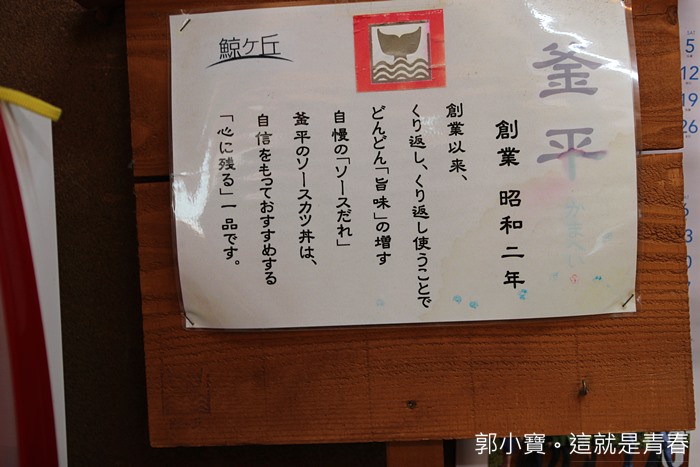 釜平
創業 昭和二年
創業以来、
くり返し、くり返し使うことで
どんどん「旨味」の増す
自慢の「ソースだれ」
釜平のソースカツ丼は、
自信をもっておすすめする
「心に残る」一品です。
鯨ケ丘
SAT
5
12
19
26
郭小寶。這就是青春